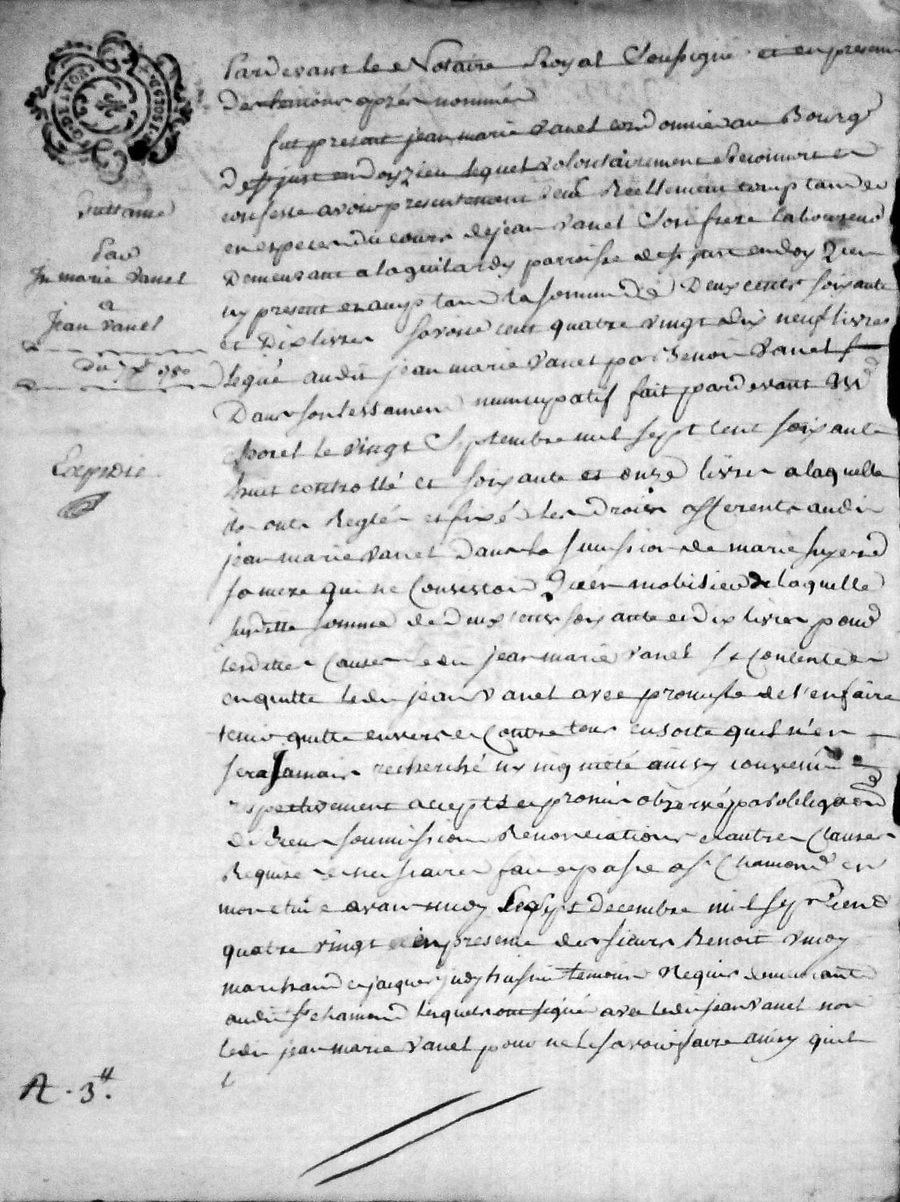 GÉNÉR. DE LYON
Quittance
Par
Jn marie vanel
a
Jean vanel
du 7 xbre 1780
Expedié
Pardevant le Notaire Royal Soussigné et en presence
des temoins après nommés
fut present jean marie vanel cordonnier au Bourg
de st just en doyzieu lequel volontairement Reconnoit et
confesse avoir presentement Reçu Réellement comptant et
en especes du cours de jean vanel Son frere laboureur
Demeurant a la guilardy parroisse de st just en doyzieu
icy present et acceptant la somme de Deux cents soixante
et Dix livres savoir cent quatre vingt dix neuf livres
legué audit jean marie vanel par Benoit vanel
Dans son testament nuncupatif fait pardevant Me
le vingt Septembre mil sept cent soixante
huit controllé et soixante et onze livres a laquelle
ils ont Reglés et fixé les droits afferents audit
jean marie vanel dans la succession de marie
sa mere qui ne consistoit qu'en mobilier de laquelle
susditte somme de deux cents soixante et dix livres pour
lesdittes causes ledit jean marie vanel se contente et
en quitte ledit jean vanel avec promesse de l'en faire
tenir quitte envers et contre tous en sorte qu'il n'en
sera Jamais recherché ny inquieté ainsy convenu
respectivement accepté et promis observé par obligaon
de biens soumissions Renonciations et autres clauses
Requises et necessaires fait et passé a st Chamond en
mon etude avant midy Le sept Decembre mil sept cent
quatre vingt en presence de sieurs Benoit
marchand et jacques huissier temoins Requis demeurants
audit st chamond lesquels ont signé avec ledit jean vanel non
ledit jean marie vanel pour ne le savoir faire ainsy qu'il
A. 3tt.